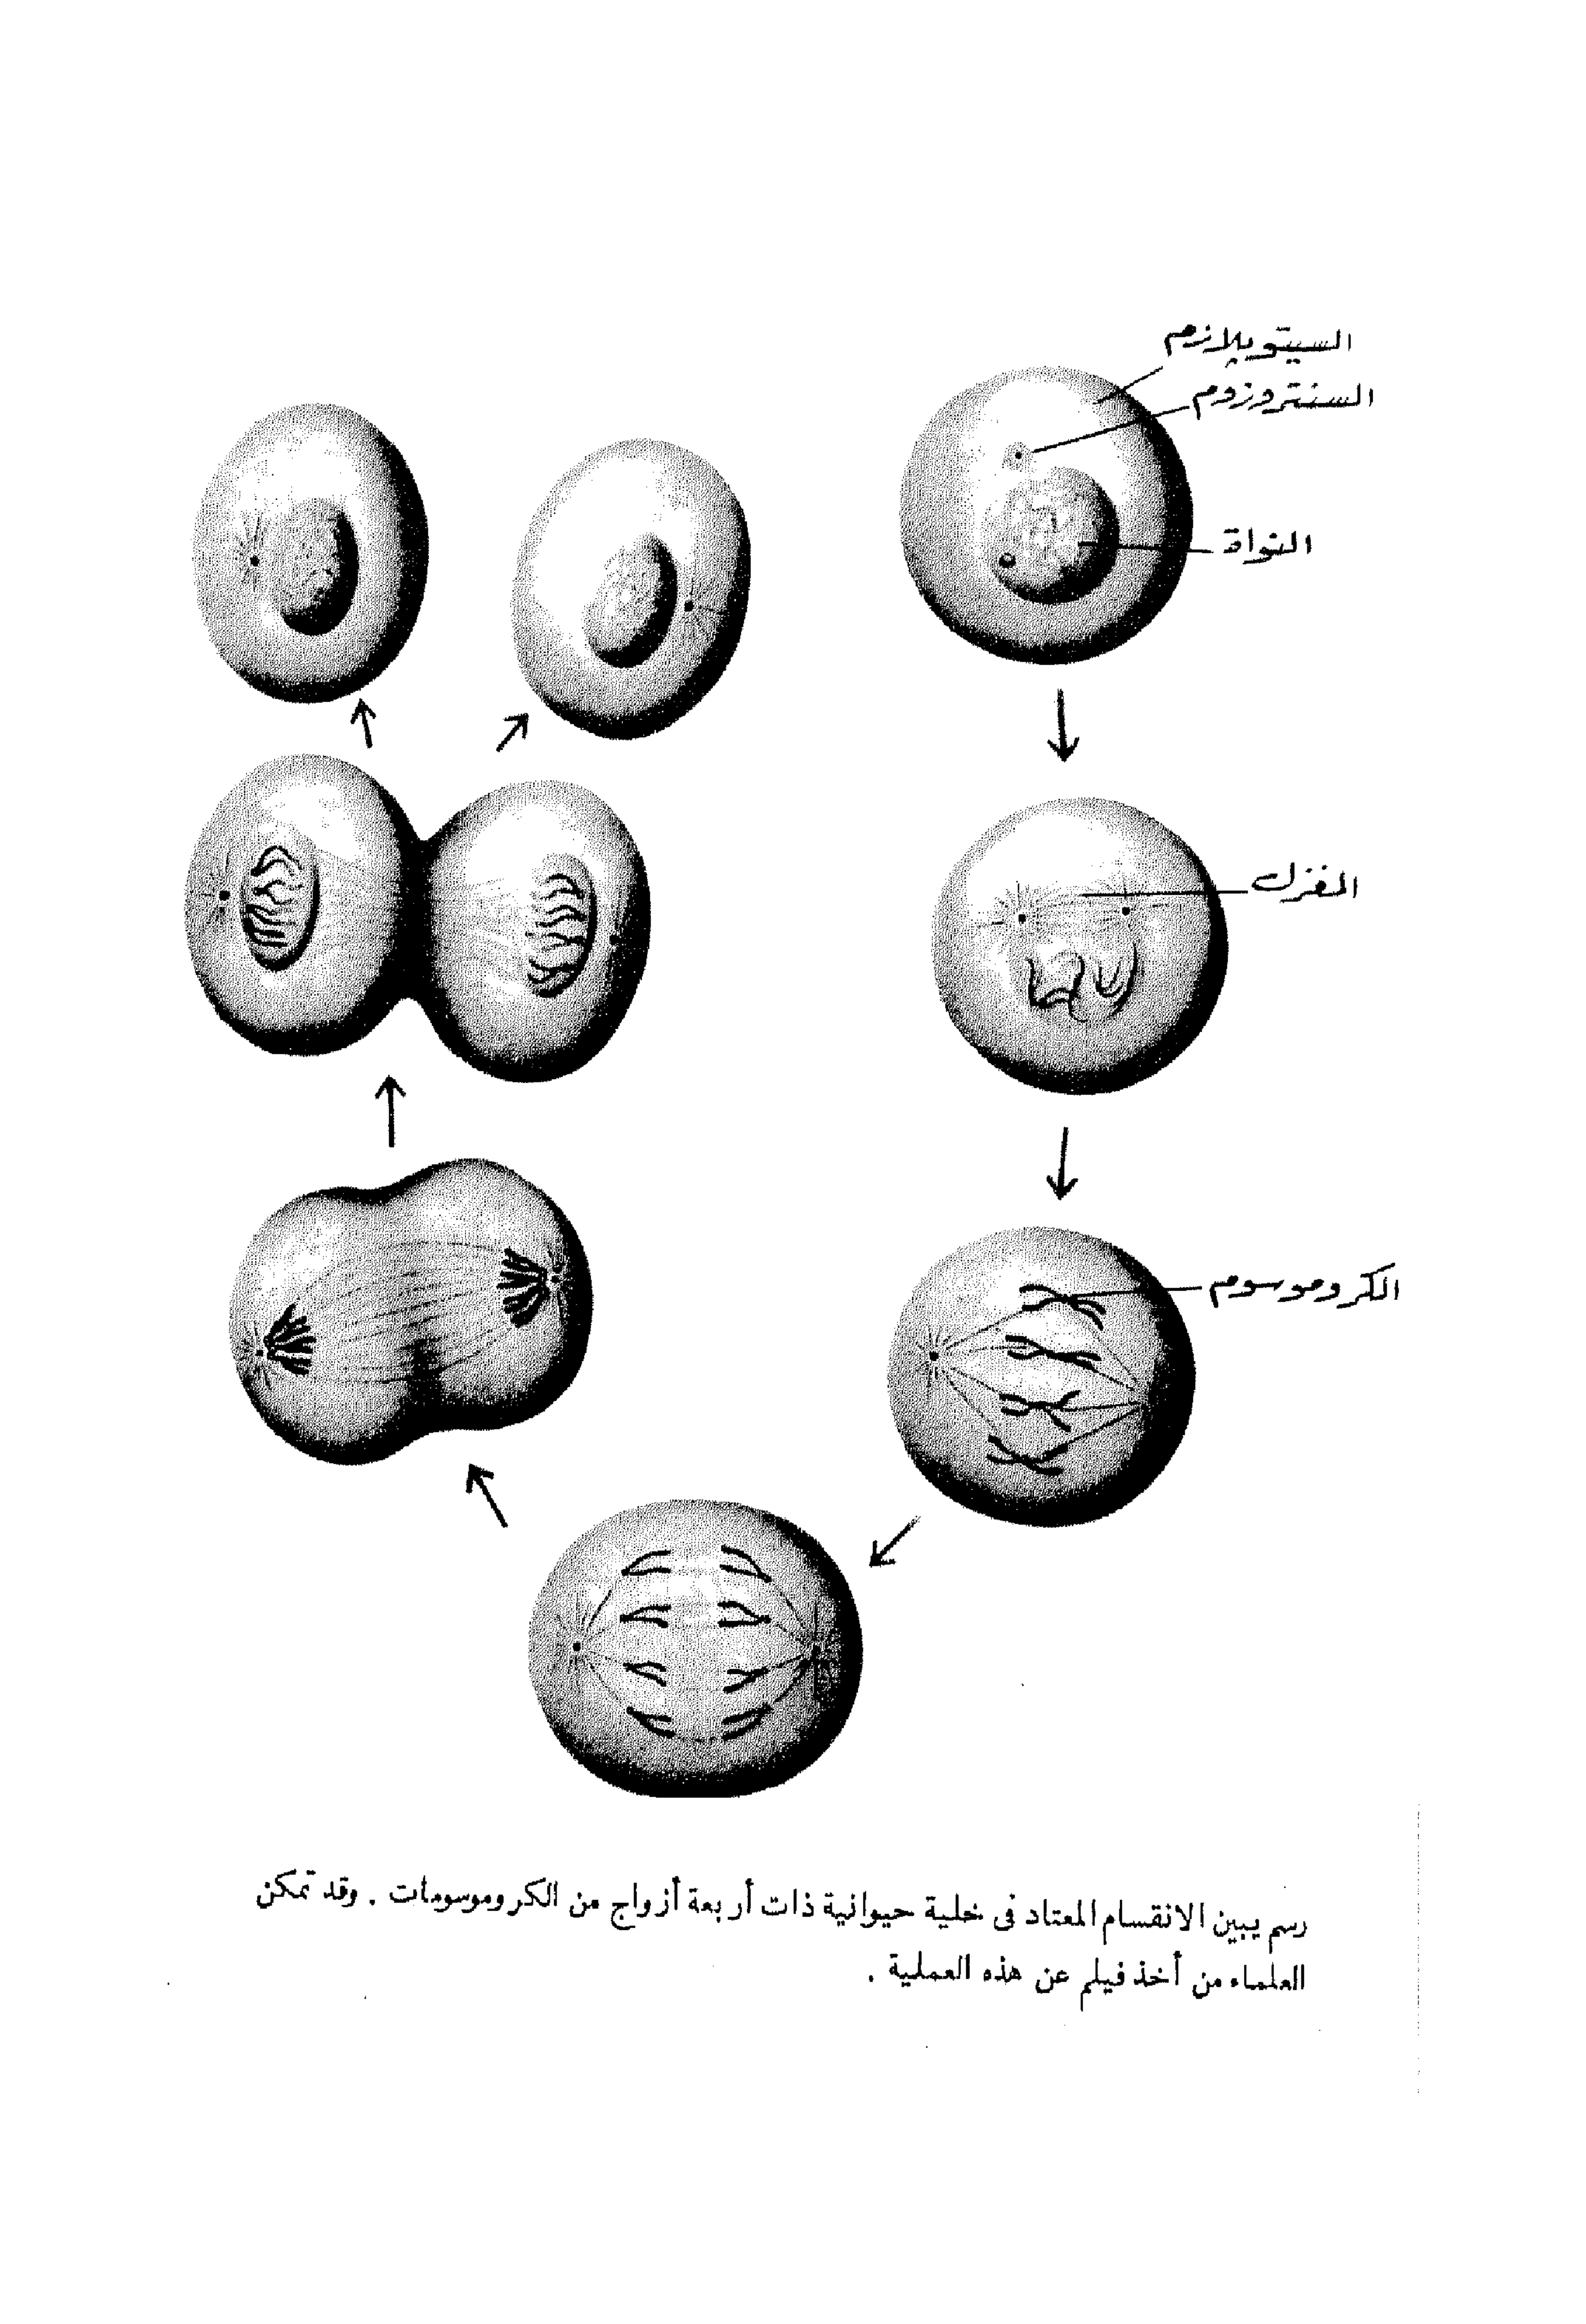 السيتوبلازم
السنتروزوم
النواة
المغزل
الكروموسوم
رسم يبين الانقسام المعتاد فى خلية حيوانية ذات أربعة أزواج من الكروموسومات . وقد تمكن
العلماء من أخذ فيلم عن هذه العملية .